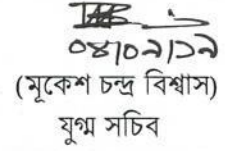 ০৪/০৯/১৯
(মূকেশ চন্দ্র বিশ্বাস)
যুগ্ম সচিব